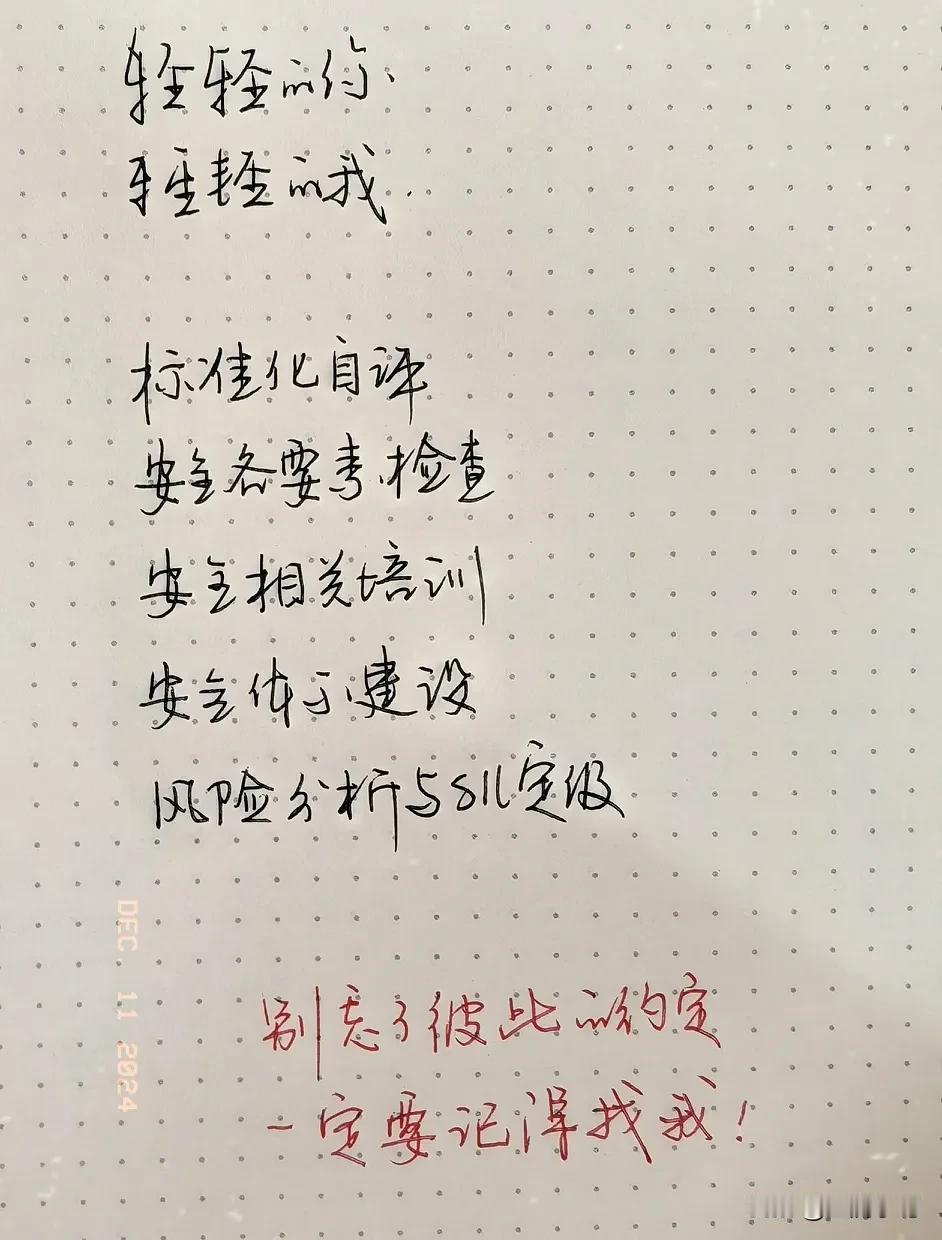 轻轻的你.
轻轻的我.
标准化自评
安全各要素检查
安全相关培训
安全体系建设
风险分析与SIL定级
别忘了彼此的约定
一定要记得找我！
DEC. 11 2024